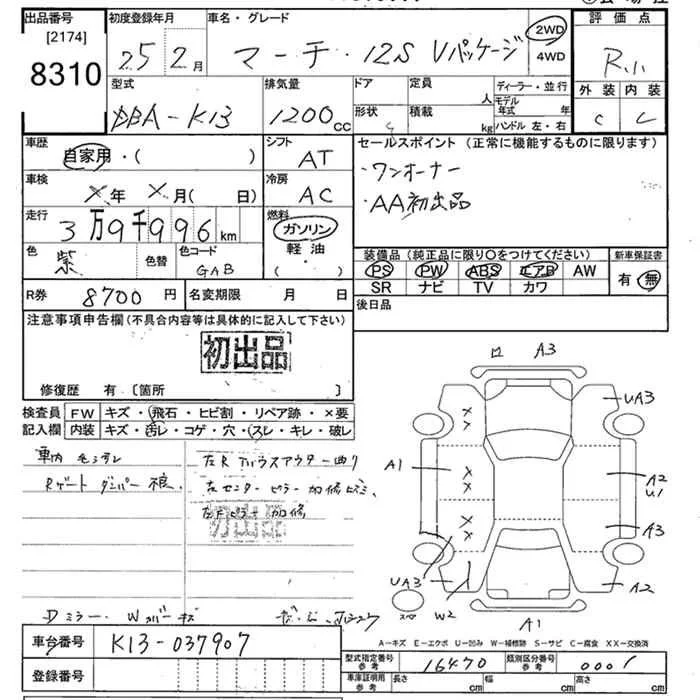 出品番号 初度登録年月 車名・グレード 評価点
[2174]
8310
25 2月 マーチ・12S Vパッケージ 2WD 4WD R
外装 内装
C C
型式 排気量 ドア 定員 人 ディーラー・並行
DBA-K13 1200cc 形状 積載 kg モデル年式 年
ハンドル 左・右
車歴 シフト セールスポイント (正常に機能するものに限ります)
自家用・( ) AT ・ワンオーナー
車検 冷房 ・AA初出品
X年 X月( 日) AC
走行 燃料
3万9千996km ガソリン
軽油・( )
色 色替 色コード 装備品 (純正品に限り○をつけてください) 新車保証書
紫 GAB PS PW ABS エアB AW 有 無
SR ナビ TV カワ
R券 8700円 名変期限 月 日 後日品
注意事項申告欄 (不具合内容等は具体的に記入して下さい)
初出品
修復歴 有 [箇所 ]
検査員記入欄 FW キズ・飛石・ヒビ割・リペア跡・×要
内装 キズ・汚レ・コゲ・穴・スレ・キレ・破レ
車内
Rゲート ダンパー 不良
左R ハウスアウター曲り
左センターピラー 加修
左Fピラー 加修
初出品
Dミラー・Wカバーキズ
A3
UA3
A1 A2
U1
A3
UA3 W2 A2
A1
A-キズ E-エクボ U-凹み W-補修跡 S-サビ C-腐食 XX-交換済
車台番号 K13-037907
登録番号
型式指定番号 参考 16470 類別区分番号 参考 0001
車庫証明用 参考 長さ cm 幅 cm 高さ cm